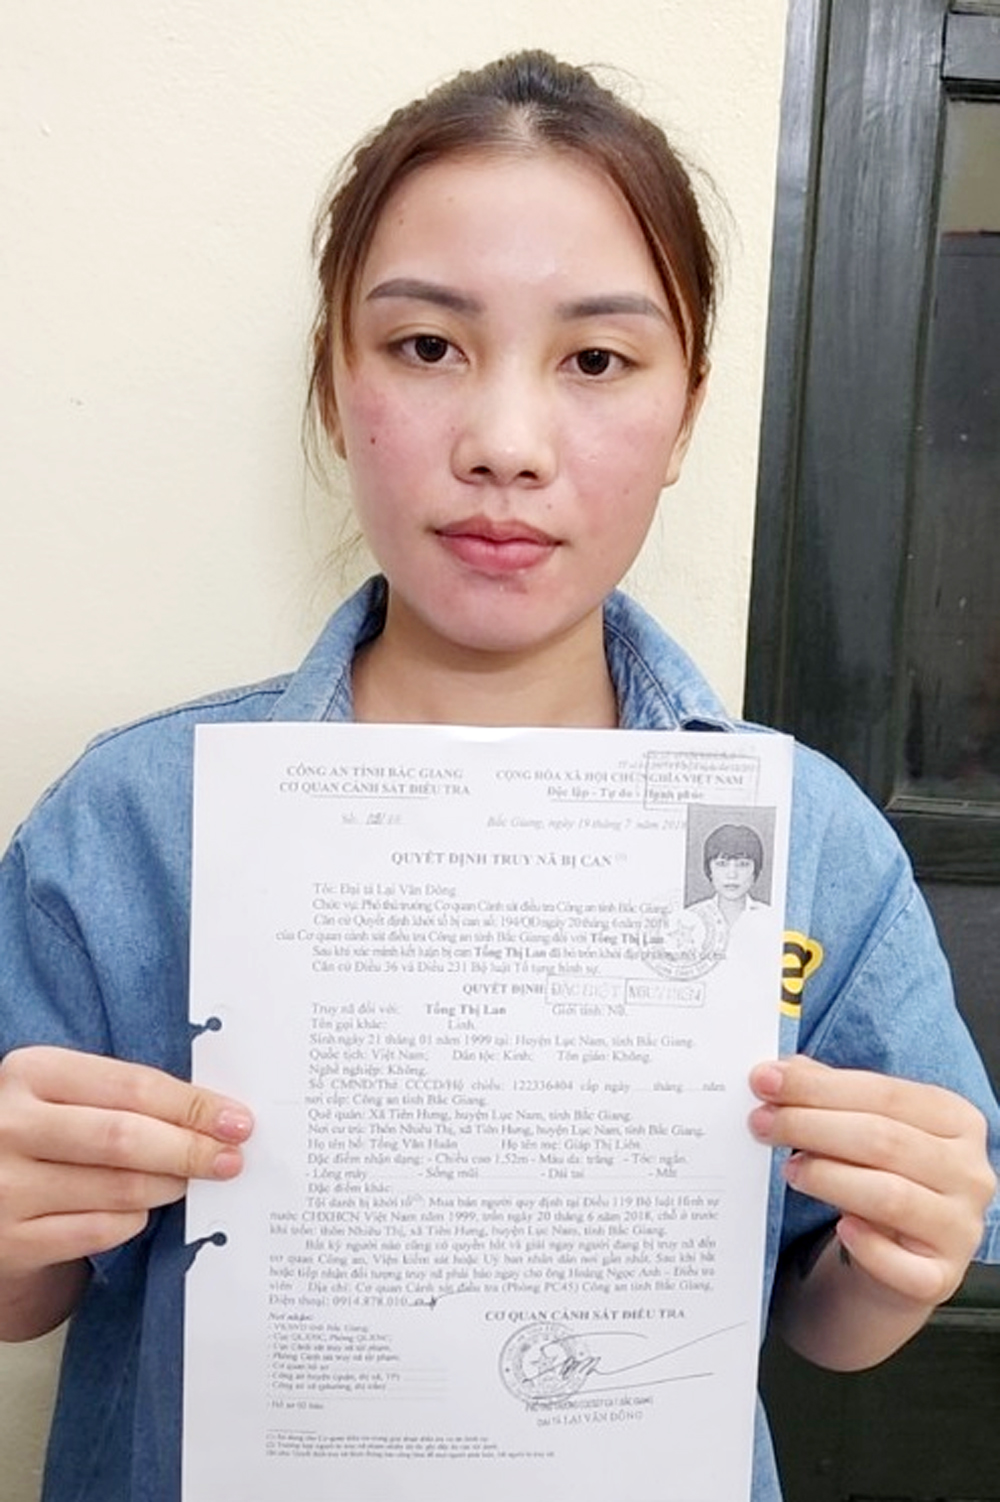 CÔNG AN TỈNH BẮC GIANG
CƠ QUAN CẢNH SÁT ĐIỀU TRA
CỘNG HÒA XÃ HỘI CHỦ NGHĨA VIỆT NAM
Độc lập - Tự do - Hạnh phúc
Số:
Bắc Giang, ngày 19 tháng 7 năm 2018
QUYẾT ĐỊNH TRUY NÃ BỊ CAN
Tôi: Đại tá Lại Văn Đông
Chức vụ: Phó thủ trưởng Cơ quan Cảnh sát điều tra Công an tỉnh Bắc Giang.
Căn cứ Quyết định khởi tố bị can số: 194/QĐ ngày 20 tháng 6 năm 2018
của Cơ quan cảnh sát điều tra Công an tỉnh Bắc Giang đối với Tống Thị Lan
Sau khi xác minh kết luận bị can Tống Thị Lan đã bỏ trốn khỏi địa phương
Căn cứ Điều 36 và Điều 231 Bộ luật Tố tụng hình sự.
QUYẾT ĐỊNH: ĐẶC BIỆT NGUY HIỂM
Truy nã đối với: Tống Thị Lan Giới tính: Nữ.
Tên gọi khác: Linh.
Sinh ngày 21 tháng 01 năm 1999 tại: Huyện Lục Nam, tỉnh Bắc Giang.
Quốc tịch: Việt Nam; Dân tộc: Kinh; Tôn giáo: Không.
Nghề nghiệp: Không.
Số CMND/Thẻ CCCD/Hộ chiếu: 122336404 cấp ngày.... tháng.... năm
nơi cấp: Công an tỉnh Bắc Giang.
Quê quán: Xã Tiên Hưng, huyện Lục Nam, tỉnh Bắc Giang.
Nơi cư trú: Thôn Nhiêu Thị, xã Tiên Hưng, huyện Lục Nam, tỉnh Bắc Giang.
Họ tên bố: Tống Văn Huân Họ tên mẹ: Giáp Thị Liên.
Đặc điểm nhận dạng: - Chiều cao 1,52m - Màu da: trắng - Tóc: ngắn.
- Lông mày - Sống mũi - Dái tai - Mắt
Đặc điểm khác:
Tội danh bị khởi tố: Mua bán người quy định tại Điều 119 Bộ luật Hình sự
nước CHXHCN Việt Nam năm 1999, trốn ngày 20 tháng 6 năm 2018, chỗ ở trước
khi trốn: thôn Nhiêu Thị, xã Tiên Hưng, huyện Lục Nam, tỉnh Bắc Giang.
Bất kỳ người nào cũng có quyền bắt và giải ngay người đang bị truy nã đến
cơ quan Công an, Viện kiểm sát hoặc Uỷ ban nhân dân nơi gần nhất. Sau khi bắt
hoặc tiếp nhận đối tượng truy nã phải báo ngay cho ông Hoàng Ngọc Anh - Điều tra
viên Địa chỉ: Cơ quan Cảnh sát điều tra (Phòng PC45) Công an tỉnh Bắc Giang,
Điện thoại: 0914.878.010
CƠ QUAN CẢNH SÁT ĐIỀU TRA
Nơi nhận:
- VKSND tỉnh Bắc Giang;
- Cục
- Cục Cảnh sát truy nã tội phạm;
- Phòng Cảnh sát truy nã tội phạm;
- Cơ quan hồ sơ
- Công an huyện (quận, thị xã, TP)
- Công an xã (phường, thị trấn)
- Hồ sơ 02 bản.
ĐẠI TÁ LẠI VĂN ĐÔNG